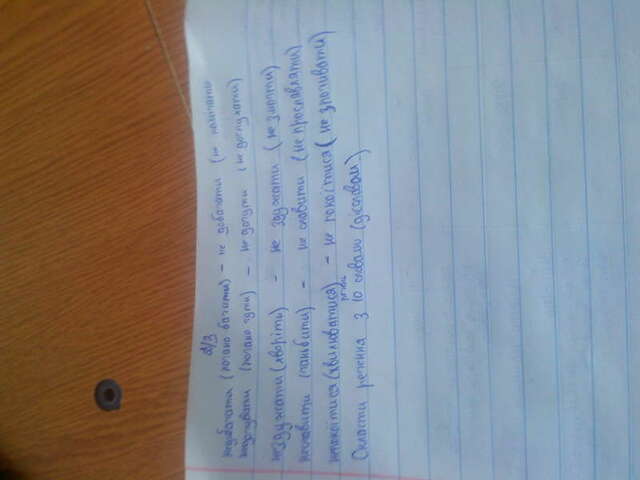 Д/З
недобачати (погано бачити) – не добачати (не помічати
недочувати (погано чути) – не дочути (не дослухати)
нездужати (хворіти) – не здужати (не змогти)
неславити (ганьбити) – не славити (не прославляти)
непокоїтися (хвилюватися) – не покоїтися (не спочивати)
Скласти речення з 10 словами (дієсловами)